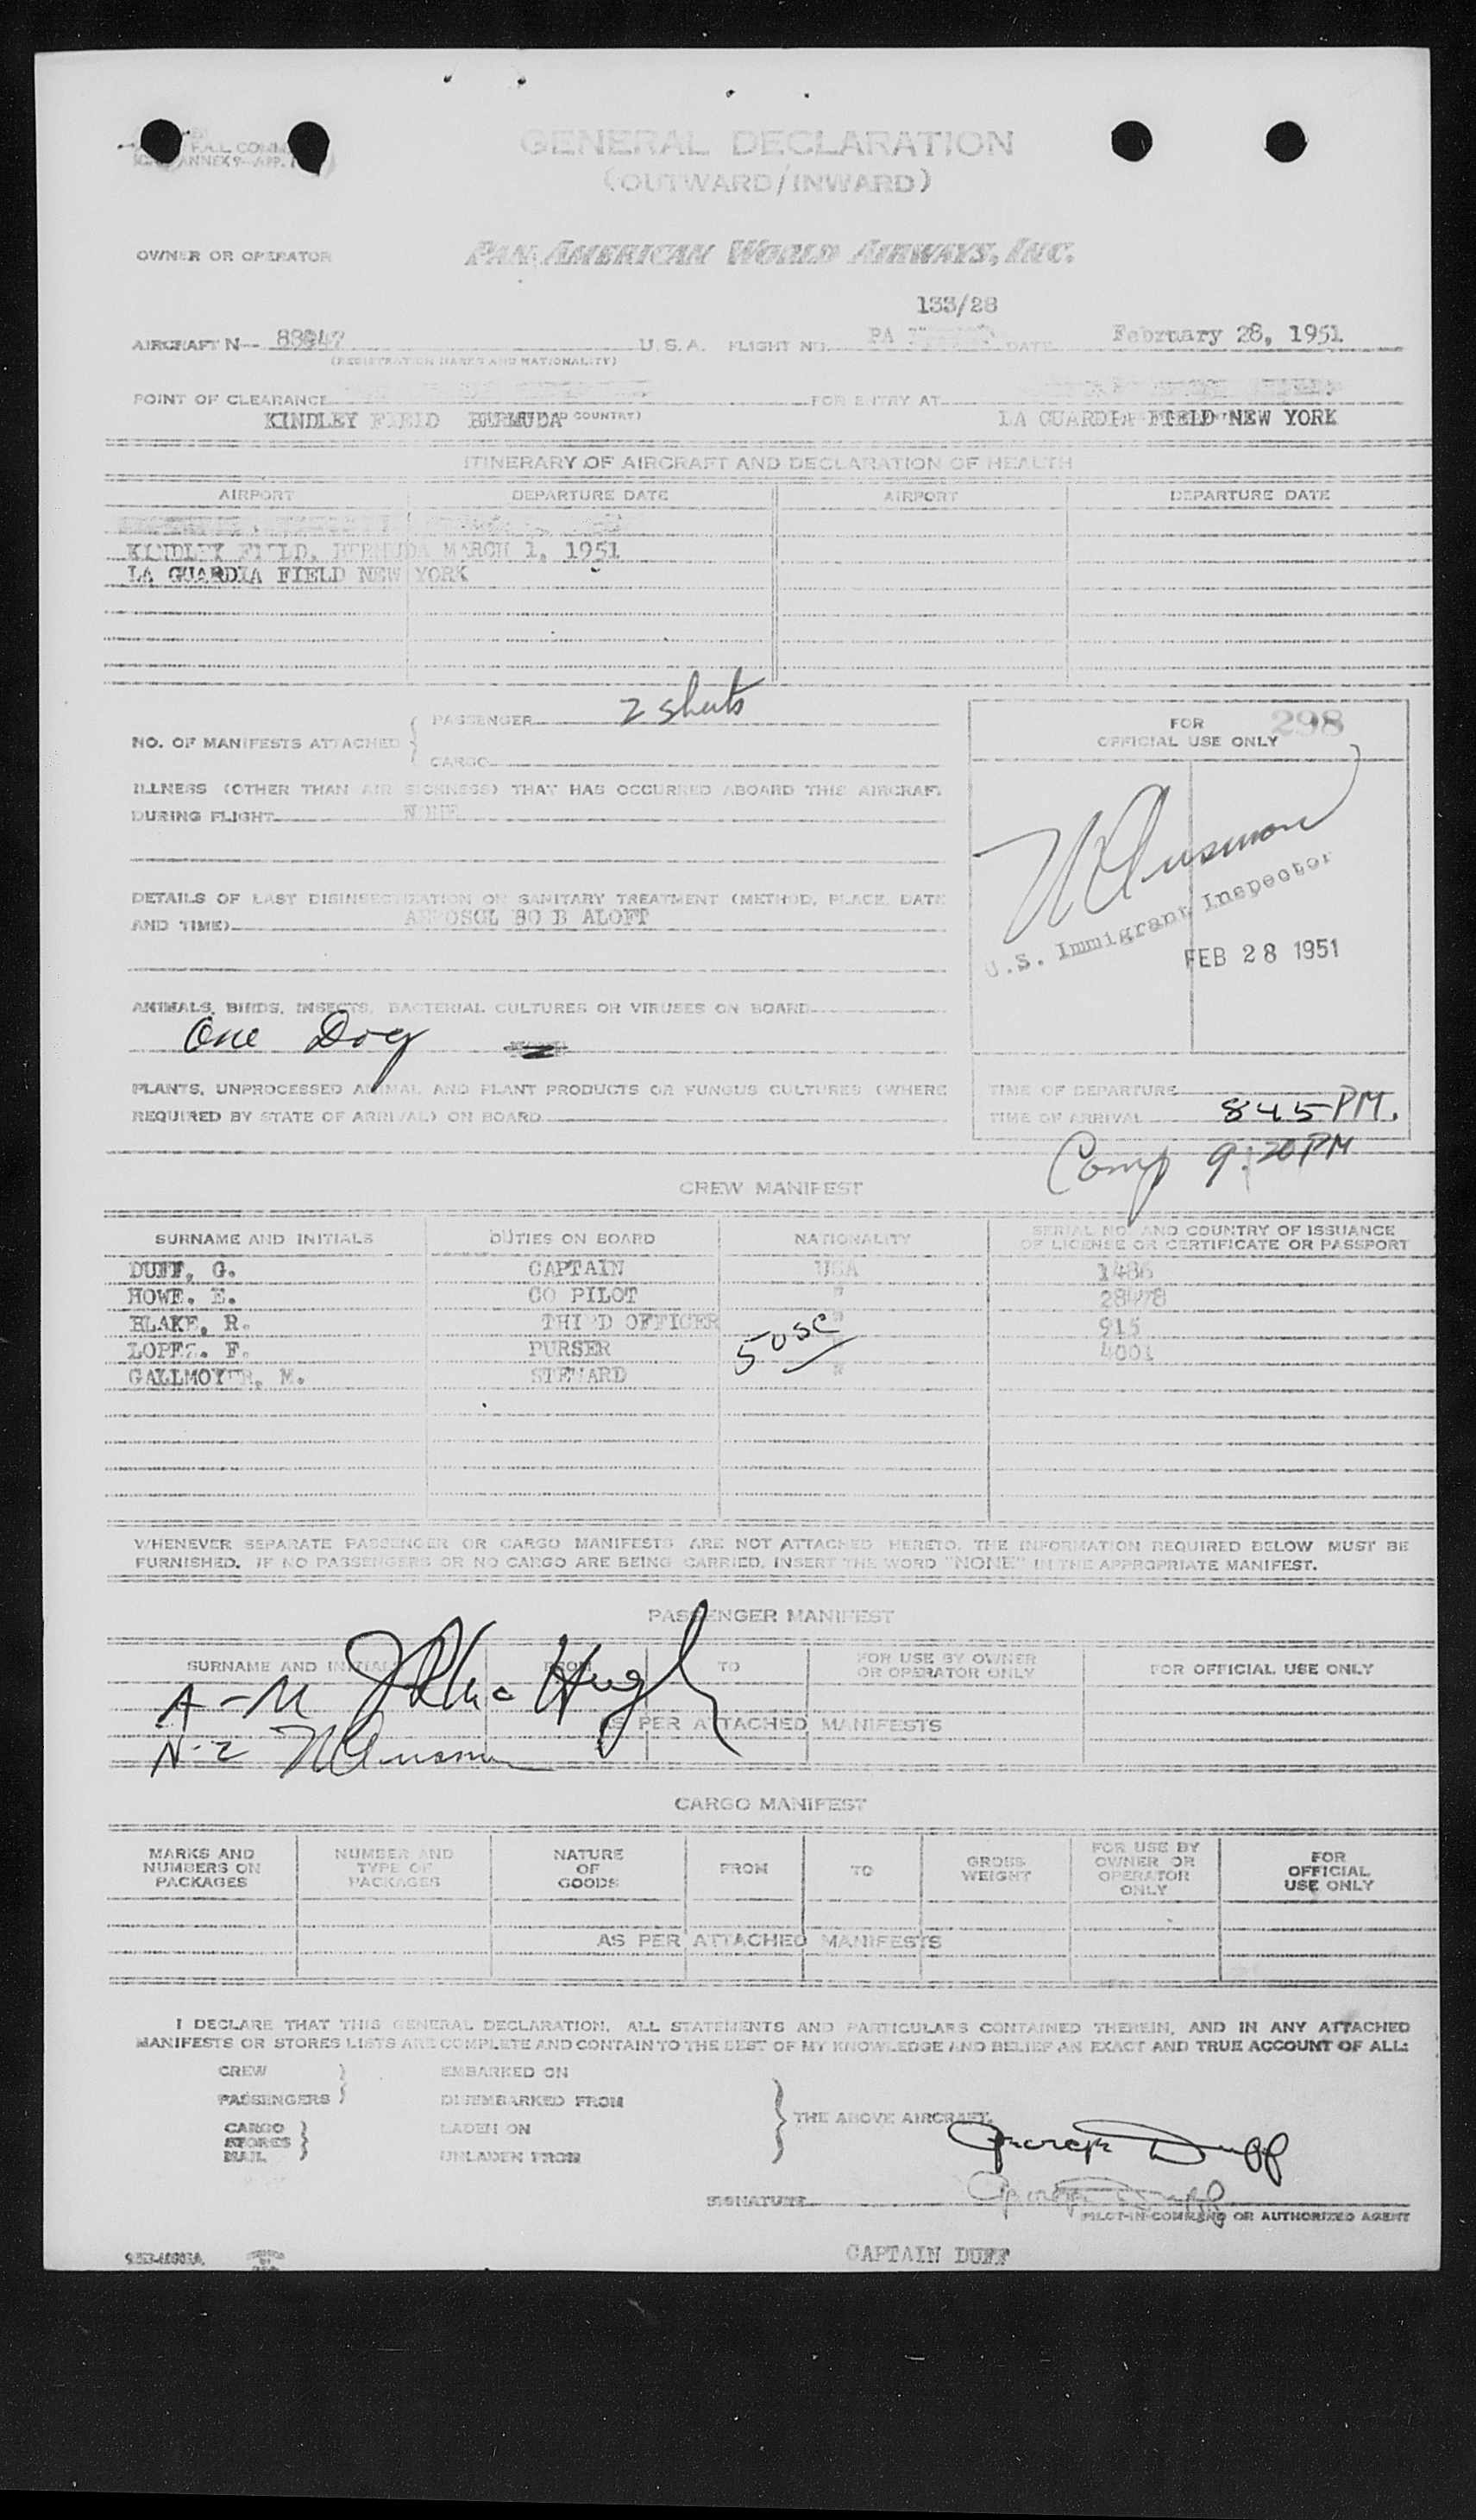 F.A.L. COMM
ANNEX 9—APP. 1
GENERAL DECLARATION
(OUTWARD/INWARD)
OWNER OR OPERATOR PAN AMERICAN WORLD AIRWAYS, INC.
133/28
AIRCRAFT N-- U.S.A. FLIGHT NO. PA DATE February 28, 1951
(REGISTRATION MARKS AND NATIONALITY)
POINT OF CLEARANCE FOR ENTRY AT
KINDLEY FIELD BERMUDA COUNTRY) LA GUARDIA FIELD NEW YORK
ITINERARY OF AIRCRAFT AND DECLARATION OF HEALTH
AIRPORT DEPARTURE DATE AIRPORT DEPARTURE DATE
KINDLEY FIELD, BERMUDA MARCH 1, 1951
LA GUARDIA FIELD NEW YORK
NO. OF MANIFESTS ATTACHED { PASSENGER 2 sheets
CARGO
FOR 298
OFFICIAL USE ONLY
ILLNESS (OTHER THAN AIR SICKNESS) THAT HAS OCCURRED ABOARD THIS AIRCRAFT
DURING FLIGHT NONE
DETAILS OF LAST DISINSECTIZATION OR SANITARY TREATMENT (METHOD, PLACE, DATE
AND TIME) AEROSOL BOMB ALOFT
U.S. Immigrant Inspector
FEB 28 1951
ANIMALS, BIRDS, INSECTS, BACTERIAL CULTURES OR VIRUSES ON BOARD
One Dog
PLANTS, UNPROCESSED ANIMAL AND PLANT PRODUCTS OR FUNGUS CULTURES (WHERE
REQUIRED BY STATE OF ARRIVAL) ON BOARD
TIME OF DEPARTURE
TIME OF ARRIVAL 845 PM.
Comp 9:20 PM
CREW MANIFEST
SURNAME AND INITIALS DUTIES ON BOARD NATIONALITY SERIAL NO. AND COUNTRY OF ISSUANCE
OF LICENSE OR CERTIFICATE OR PASSPORT
DUFF, G. CAPTAIN USA 1486
HOWE. E. CO PILOT "
BLAKE, R. THIRD OFFICER " 915
LOPEZ. F. PURSER 5 USC 4001
GALLMOYER, M. STEWARD "
WHENEVER SEPARATE PASSENGER OR CARGO MANIFESTS ARE NOT ATTACHED HERETO, THE INFORMATION REQUIRED BELOW MUST BE
FURNISHED. IF NO PASSENGERS OR NO CARGO ARE BEING CARRIED, INSERT THE WORD "NONE" IN THE APPROPRIATE MANIFEST.
PASSENGER MANIFEST
SURNAME AND INITIALS FROM TO FOR USE BY OWNER
OR OPERATOR ONLY FOR OFFICIAL USE ONLY
A-M
AS PER ATTACHED MANIFESTS
N-Z
CARGO MANIFEST
MARKS AND
NUMBERS ON
PACKAGES
NUMBER AND
TYPE OF
PACKAGES
NATURE
OF
GOODS
FROM
TO
GROSS
WEIGHT
FOR USE BY
OWNER OR
OPERATOR
ONLY
FOR
OFFICIAL
USE ONLY
AS PER ATTACHED MANIFESTS
I DECLARE THAT THIS GENERAL DECLARATION, ALL STATEMENTS AND PARTICULARS CONTAINED THEREIN, AND IN ANY ATTACHED
MANIFESTS OR STORES LISTS ARE COMPLETE AND CONTAIN TO THE BEST OF MY KNOWLEDGE AND BELIEF AN EXACT AND TRUE ACCOUNT OF ALL:
CREW EMBARKED ON
PASSENGERS DISEMBARKED FROM
THE ABOVE AIRCRAFT.
CARGO LADEN ON
STORES
MAIL UNLADEN FROM
George Duff
George Duff
SIGNATURE
PILOT-IN-COMMAND OR AUTHORIZED AGENT
CAPTAIN DUFF